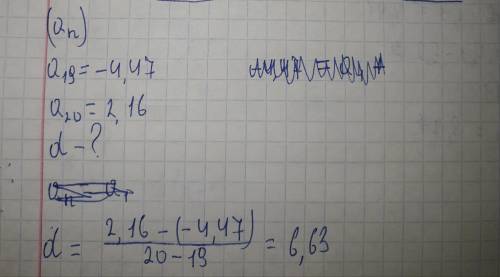 (aₙ)
a₁₉ = -4,47
a₂₀ = 2,16
d - ?
d = \frac{2,16 - (-4,47)}{20 - 19} = 6,63